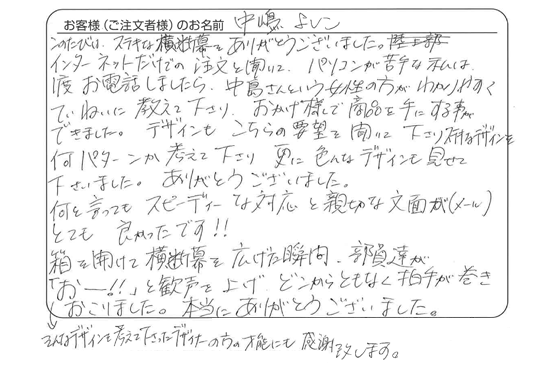 お客様(ご注文者様)のお名前 中嶋 よしこ
このたびは、ステキな横断幕をありがとうございました。陸上部
インターネットだけでの注文と聞いて、パソコンが苦手な私は、
度お電話しましたら、中島さんという女性の方がわかりやすく
ていねいに教えて下さり、おかげ様で商品を手にする事が
できました。デザインも こちらの要望を聞いて下さり ステキなデザインを
何パターンか考えて下さり 更に色んなデザインも見せて
下さいました。ありがとうございました。
何と言っても スピーディーな対応と親切な文面が(メール)
とても 良かったです!!
箱を開けて横断幕を広げた瞬間、部員達が
「おー!!」と歓声を上げ、どこからともなく拍手が巻き
おこりました。本当にありがとうございました。
そんなデザインを考えて下さったデザイナーの方の才能にも 感謝致します。